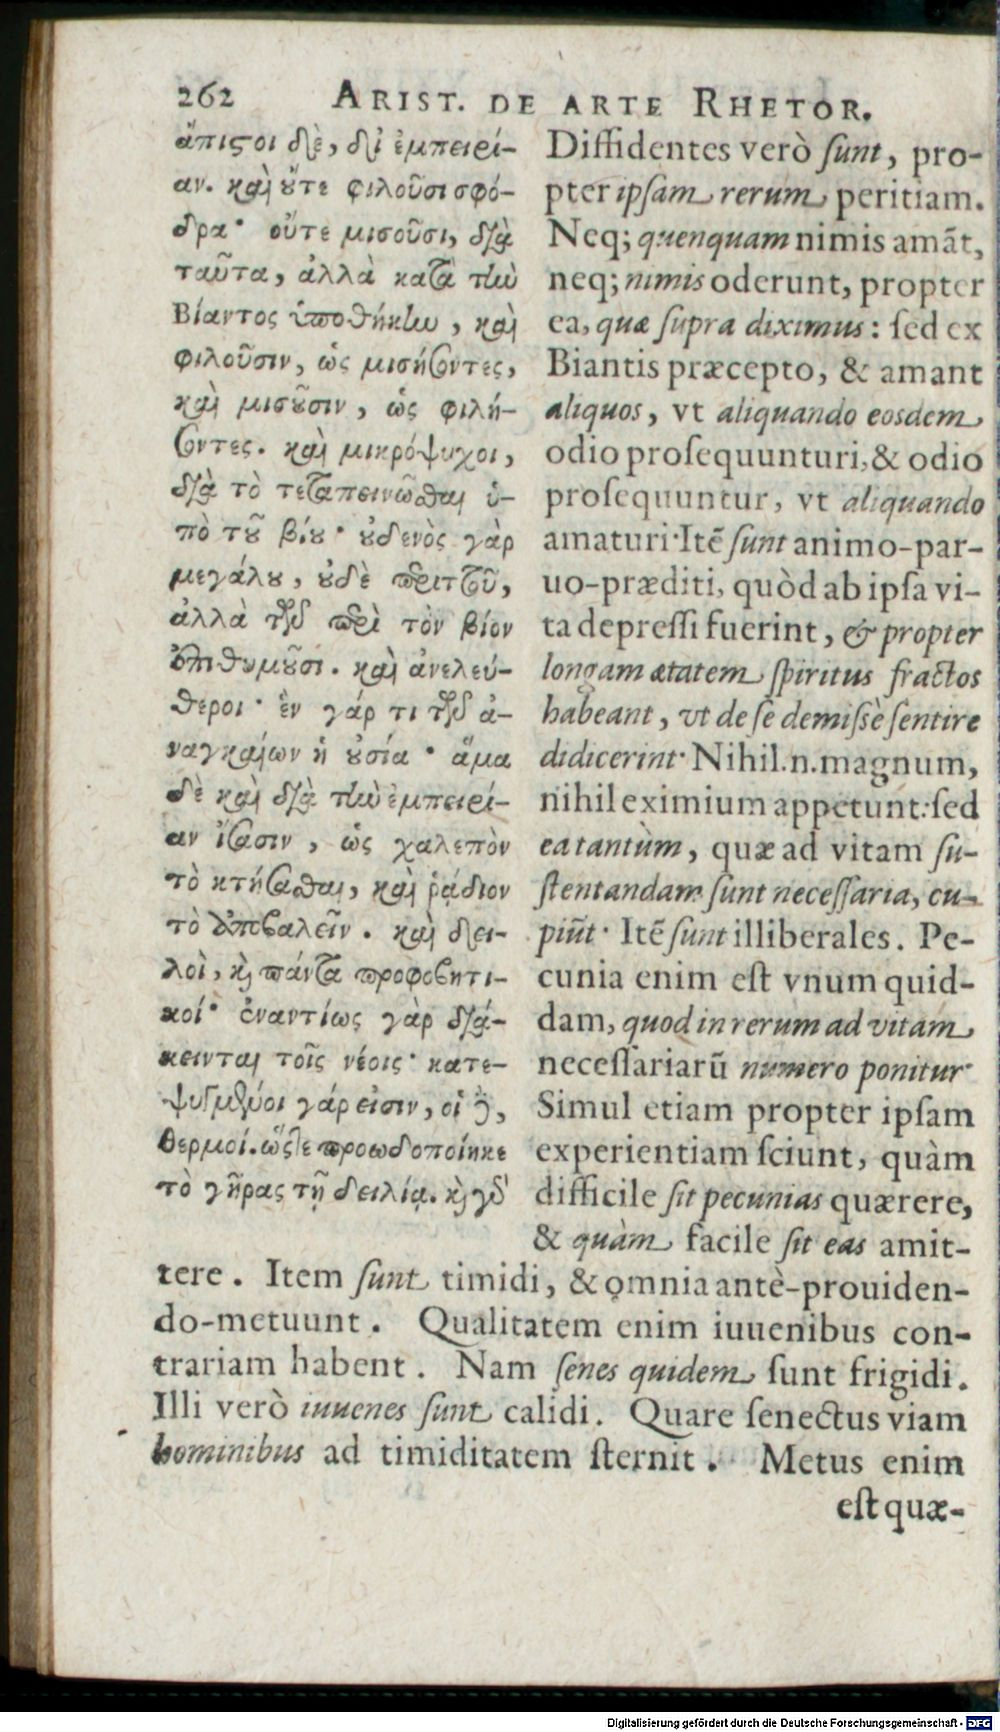 262 ARIST. DE ARTE RHETOR.
ἄπιστοι δὲ, δι' ἐμπειρί-
αν. καὶ ὄτε φιλοῦσι σφό-
δρα· οὔτε μισοῦσι, διὰ
ταῦτα, ἀλλὰ κατὰ τὴν
Βίαντος ὑποθήκην, καὶ
φιλοῦσιν, ὡς μισήσοντες,
καὶ μισοῦσιν, ὡς φιλή-
σοντες. καὶ μικρόψυχοι,
διὰ τὸ τεταπεινῶσθαι ὑ-
πὸ τοῦ βίου· οὐδενὸς γὰρ
μεγάλου, οὐδὲ περιττοῦ,
ἀλλὰ τῶν περὶ τὸν βίον
ἐπιθυμοῦσι. καὶ ἀνελεύ-
θεροι· ἓν γάρ τι τῶν ἀ-
ναγκαίων ἡ οὐσία· ἅμα
δὲ καὶ διὰ τὴν ἐμπειρί-
αν ἴσασιν, ὡς χαλεπὸν
τὸ κτήσασθαι, καὶ ῥᾴδιον
τὸ ἀποβαλεῖν. καὶ δει-
λοὶ, καὶ πάντα προφοβητι-
κοί· ἐναντίως γὰρ διά-
κεινται τοῖς νέοις· κατε-
ψυγμένοι γάρ εἰσιν, οἱ δὲ,
θερμοί. ὥστε προωδοποίηκε
τὸ γῆρας τῇ δειλίᾳ. καὶ γὰρ
Diffidentes verò sunt, pro-
pter ipsam rerum peritiam.
Neq; quenquam nimis amāt,
neq; nimis oderunt, propter
ea, quæ supra diximus: sed ex
Biantis præcepto, & amant
aliquos, vt aliquando eosdem
odio prosequunturi, & odio
prosequuntur, vt aliquando
amaturi· Itē sunt animo-par-
uo-præditi, quòd ab ipsa vi-
ta depressi fuerint, & propter
longam ætatem spiritus fractos
habeant, vt de se demissè sentire
didicerint· Nihil. n. magnum,
nihil eximium appetunt: sed
ea tantùm, quæ ad vitam su-
stentandam sunt necessaria, cu-
piūt· Itē sunt illiberales. Pe-
cunia enim est vnum quid-
dam, quod in rerum ad vitam
necessariarū numero ponitur·
Simul etiam propter ipsam
experientiam sciunt, quàm
difficile sit pecunias quærere,
& quàm facile sit eas amit-
tere. Item sunt timidi, & omnia antè-prouiden-
do-metuunt. Qualitatem enim iuuenibus con-
trariam habent. Nam senes quidem sunt frigidi.
Illi verò iuuenes sunt calidi. Quare senectus viam
hominibus ad timiditatem sternit. Metus enim
est quæ-
Digitalisierung gefördert durch die Deutsche Forschungsgemeinschaft - DFG